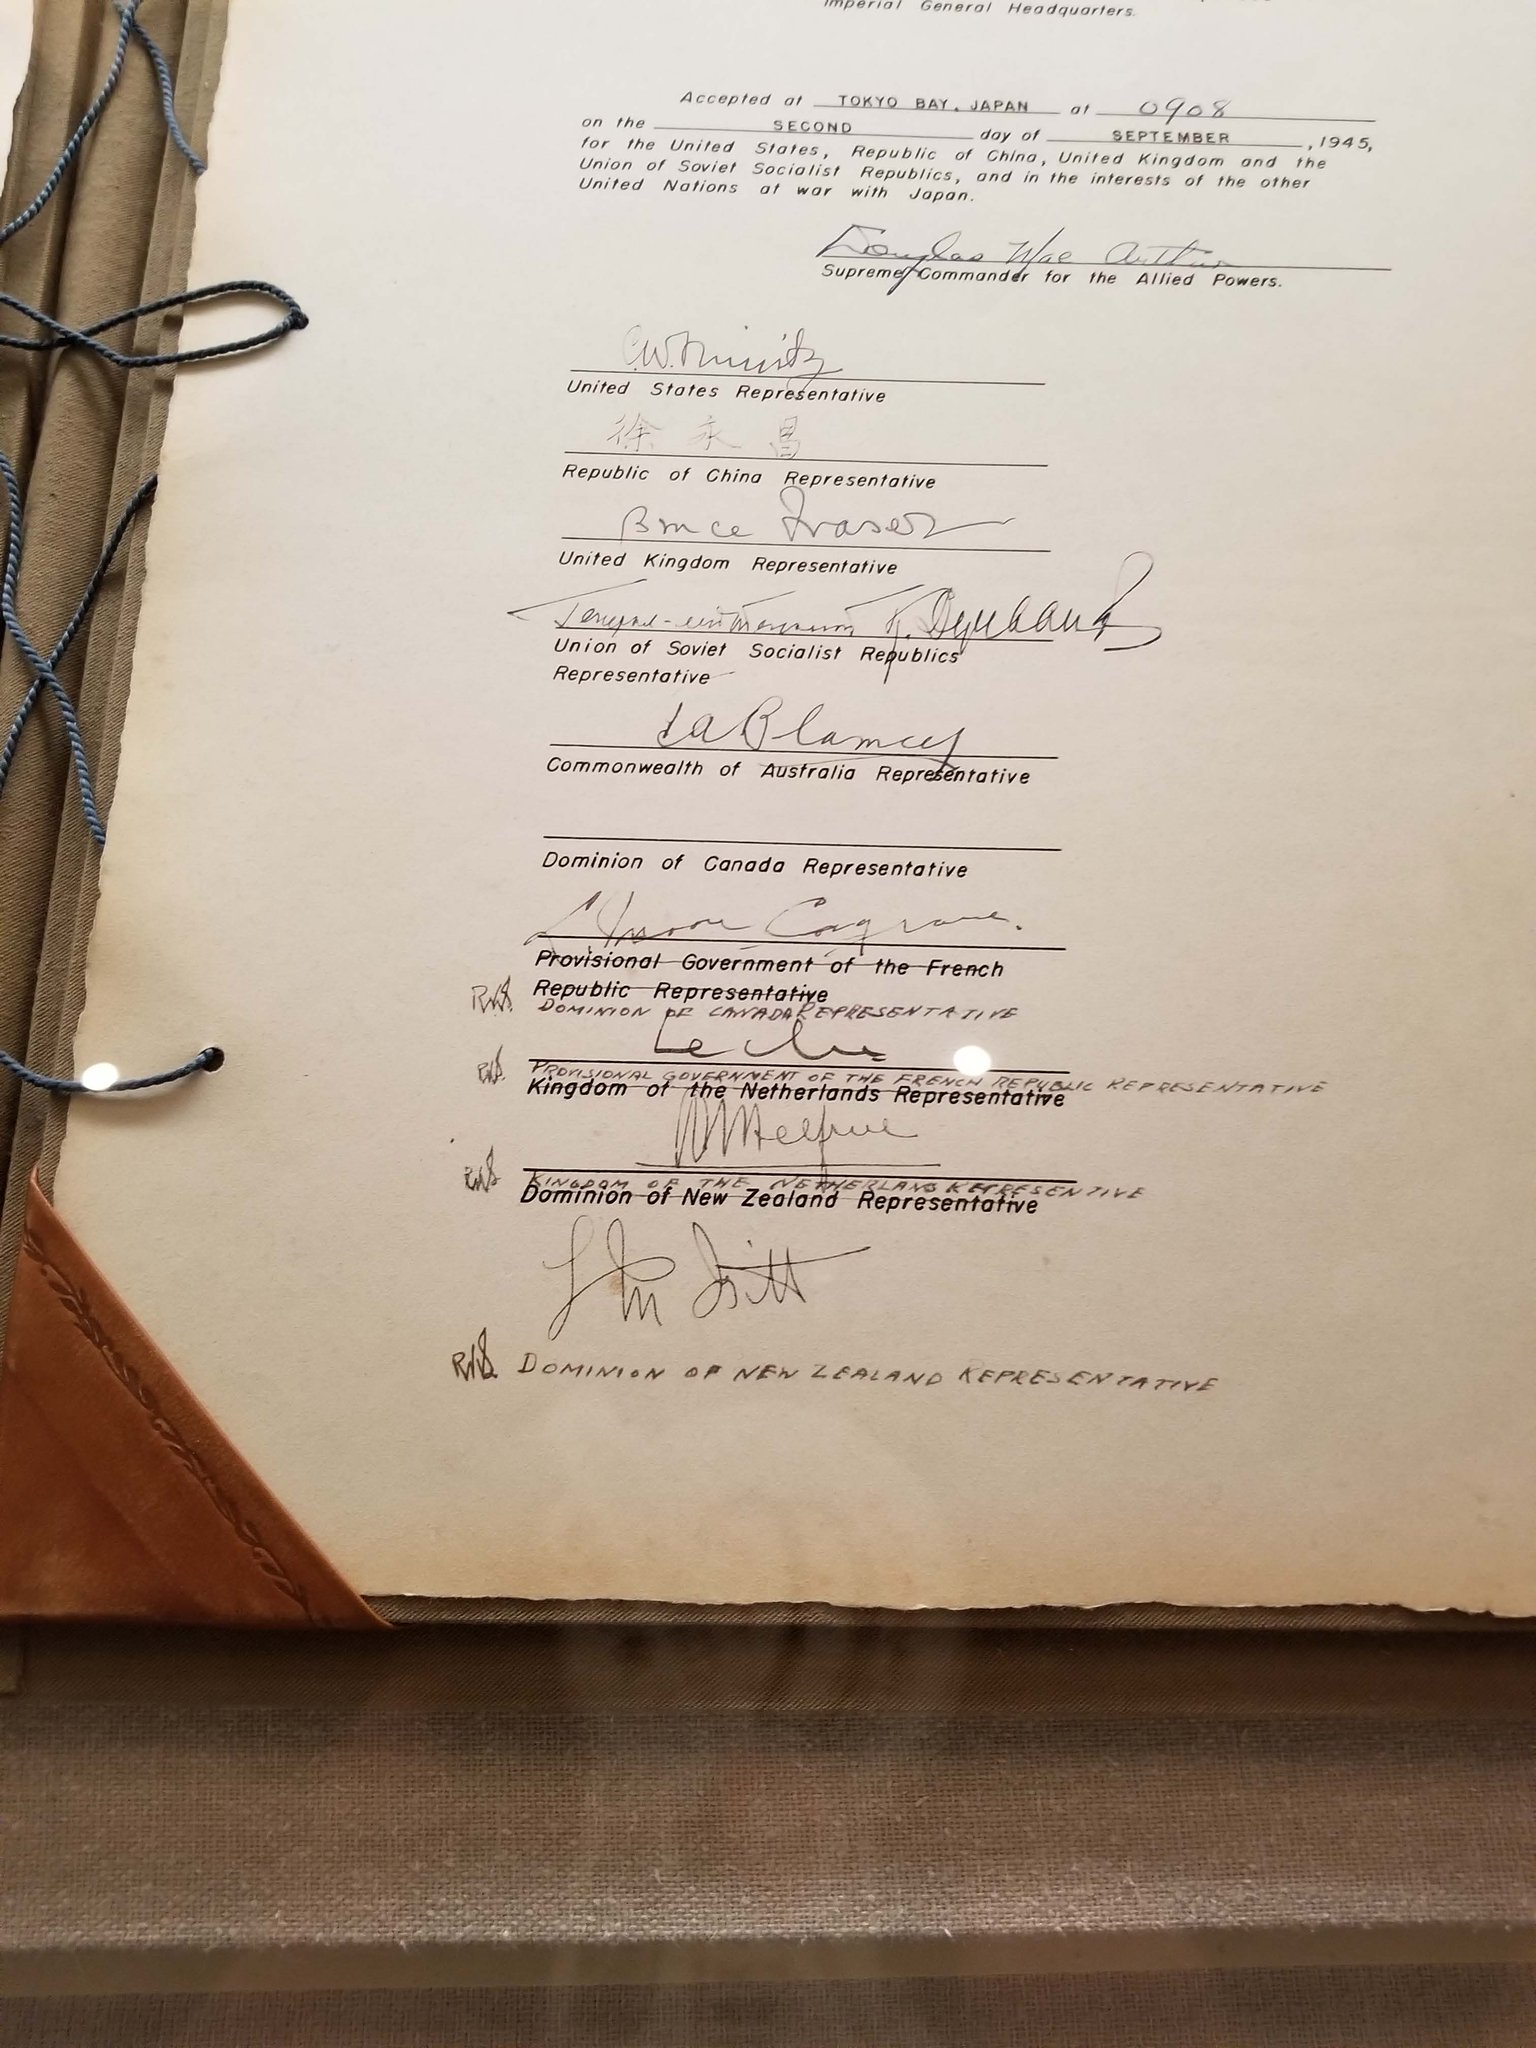 Imperial General Headquarters.
Accepted at TOKYO BAY, JAPAN at 0908
on the SECOND day of SEPTEMBER , 1945,
for the United States, Republic of China, United Kingdom and the
Union of Soviet Socialist Republics, and in the interests of the other
United Nations at war with Japan.
Douglas MacArthur
Supreme Commander for the Allied Powers.
C.W. Nimitz
United States Representative
徐永昌
Republic of China Representative
Bruce Fraser
United Kingdom Representative
Union of Soviet Socialist Republics
Representative
T A Blamey
Commonwealth of Australia Representative
Dominion of Canada Representative
L. Moore Cosgrave.
Provisional Government of the French
Republic Representative
DOMINION OF CANADA REPRESENTATIVE
Leclerc
PROVISIONAL GOVERNMENT OF THE FRENCH REPUBLIC REPRESENTATIVE
Kingdom of the Netherlands Representative
Helfrich
KINGDOM OF THE NETHERLANDS REPRESENTATIVE
Dominion of New Zealand Representative
L M Isitt
DOMINION OF NEW ZEALAND REPRESENTATIVE